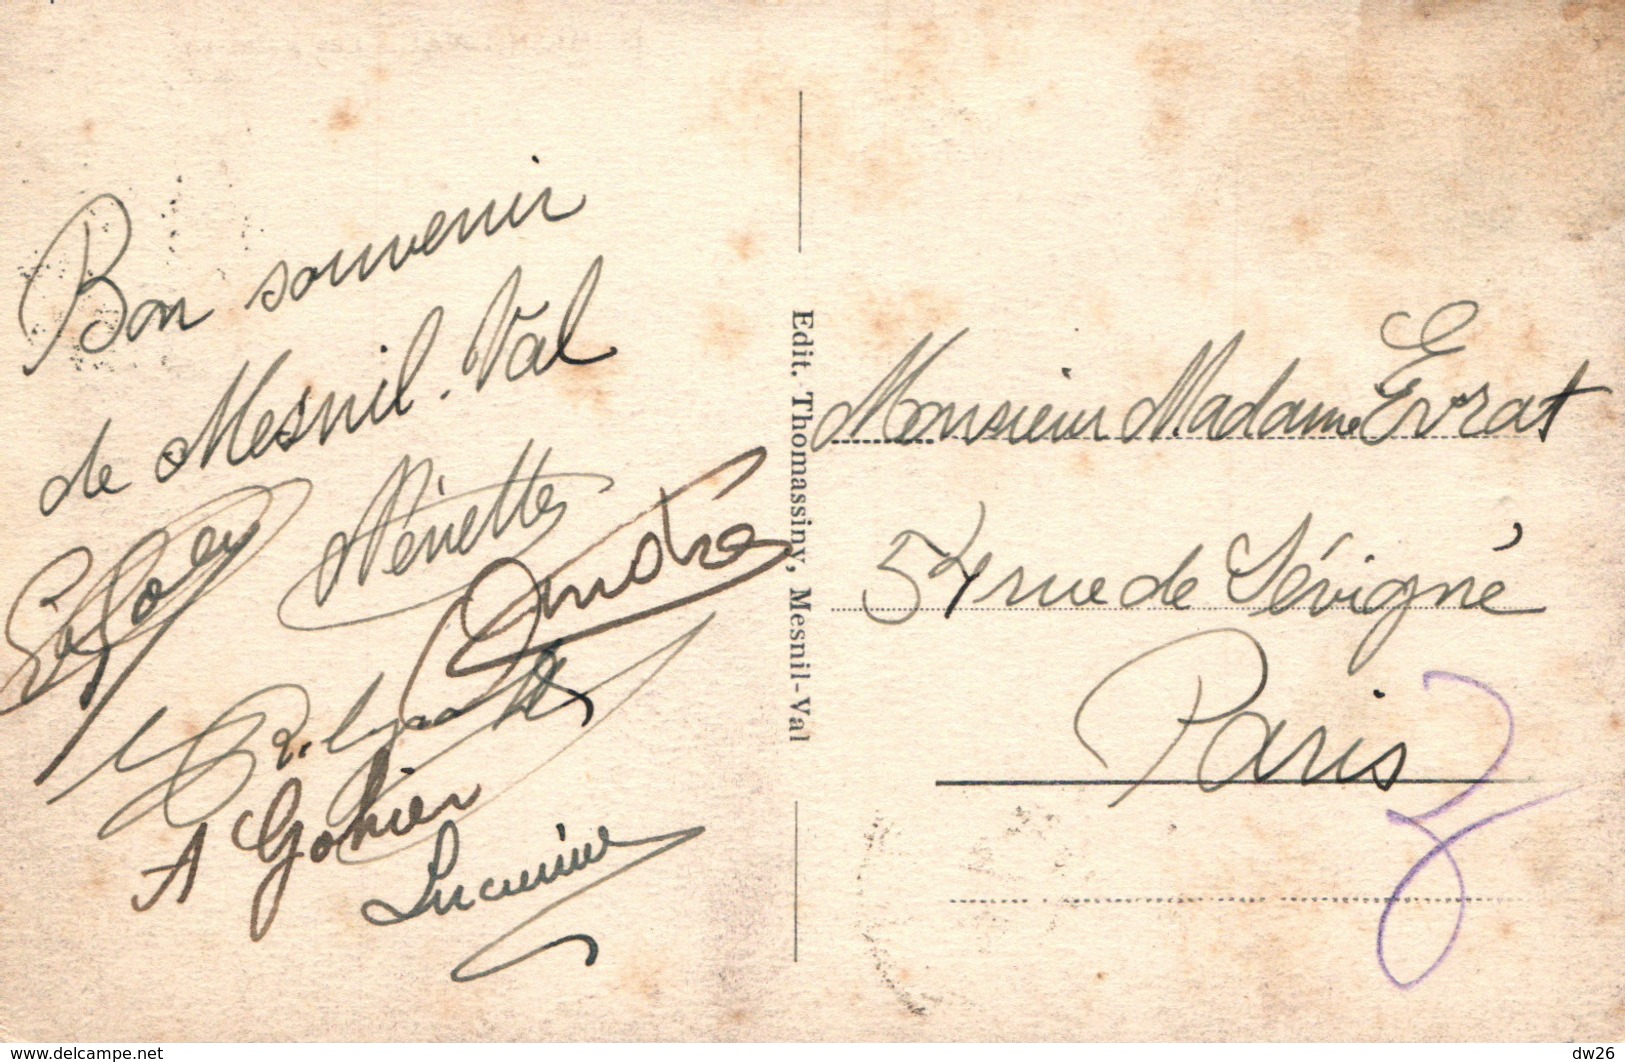 Bon souvenir
de Mesnil-Val
Nénette
André
A Gohier
Lucienne
Edit. Thomassiny, Mesnil-Val
Monsieur Madame Evrat
54 rue de Sévigné
Paris
www.delcampe.net
dw26